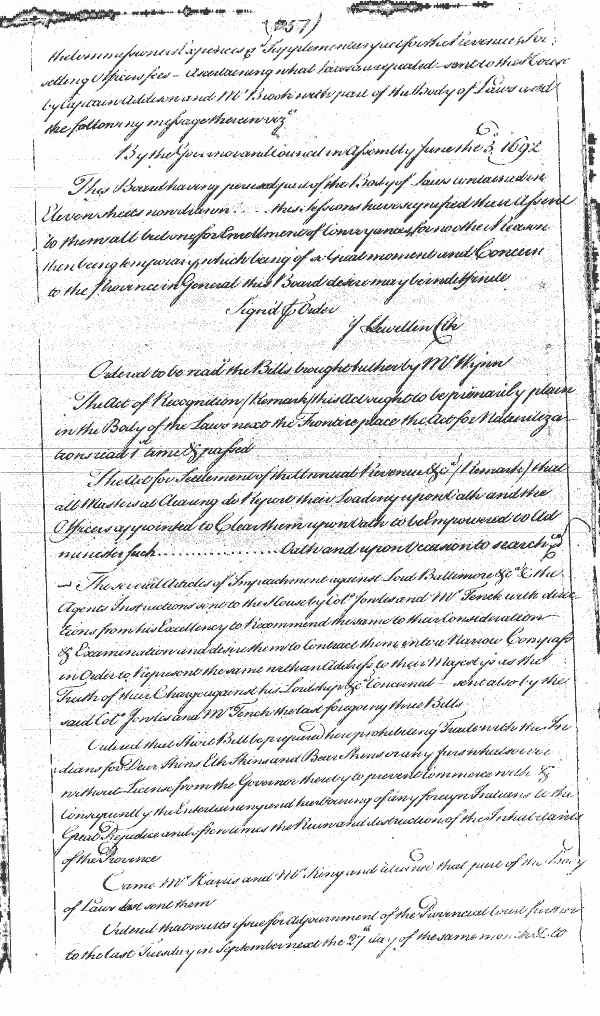 (257)
the Commissioners Expences & Supplementary act for the Revenue & for
selling Officers fees - Ascertaining what Laws are repealed - sent to the House
by Captain Addison and Mr Brooke with part of the Body of Laws and
the following message therein vizt
By the Governor and Council in Assembly June the 3d 1692
This Board having perused part of the Body of Laws contained in
Eleven sheets now drawn .... this Sessions have signified their Assent
to them all but one for Enrollment of Conveyances for no other Reason
then being temporary which being of so Great moment and Concern
to the Province in General this Board desire may be indefinite
Signd P Order
J Llewellin Clk
Ordered to be read the Bills brought hither by Mr Wynn
The Act of Recognition/Remark/this Act ought to be primarily plain
in the Body of the Laws next the Frontice place the Act for Naturaliza-
tion read 1st time & passed
The Act for Settlement of the Annual Revenue &ca /Remark/ that
all Masters at Clearing do Report their Loading upon Oath and the
Officers appointed to Clear them upon Oath to be Empowered to Ad
minister such .............. Oath and upon Occasion to search &ca
- The several Articles of Impeachment against Lord Baltimore &ca & the
Agents Instructions sent to the House by Colo Jowles and Mr Tench with direc
tions from his Excellency to Recommend the same to their Consideration
& Examination and desire them to Contract them into a Narrow Compass
in Order to Represent the same with an Address to their Majestys as the
Truth of their Charge against his Lordship &ca Concerned - sent also by the
said Colo Jowles and Mr Tench the last foregoing three Bills
Ordered that Short Bill be prepared here prohibiting Trade with the In
dians for Dear Skins Elk Skins and Bear Skins or any furs whatsoever
without License from the Governor thereby to prevent Commerce with &
Consequently the Entertaining and harbouring of any foreign Indians to the
Great Prejudice and oftentimes the Ruin and destruction of the Inhabitants
of the Province
Came Mr Harris and Mr King and returned that part of the Body
of Laws last sent them
Ordered that writts issue for Adjournment of the Provincial Court further
to the last Tuesday in September next the 27th day of the same month & to